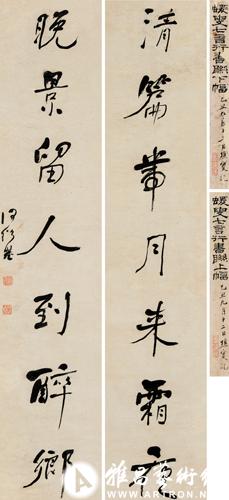 清篇带月来霜
晚景留人到醉乡
何绍基
蝯叟七言行书联上幅
蝯叟七言行書聯下幅
雅昌艺术网
WWW.ARTRON.NET